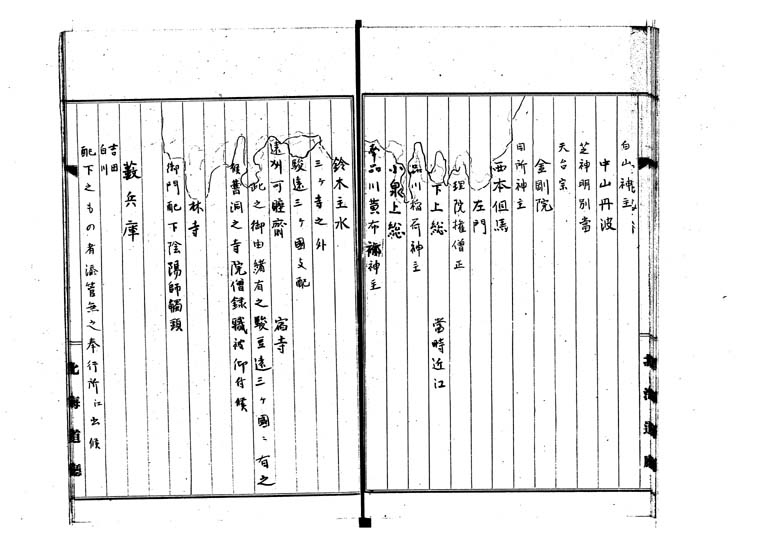 白山神主
中山丹波
芝神明別當
天台宗
金剛院
同所神主
西本但馬
左門
理院権僧正
下上総
當時近江
品川稲荷神主
小泉上総
品川貴布祢神主
北海道廳
鈴木主水
三ヶ寺之外
駿遠三ヶ國支配
遠州可睡斎
宿寺
此之御由緒有之駿豆遠三ヶ國ニ有之
曹洞之寺院僧録職被仰付候
林寺
御門配下陰陽師觸頭
藪兵庫
吉田
白川
配下之もの者添筃無之奉行所江出候
北海道廳